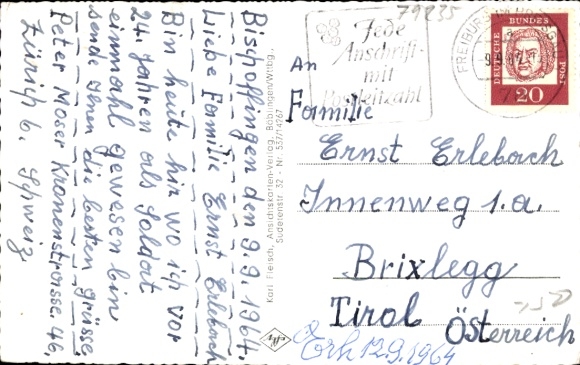 Bischoffingen den 9.9.1964.
Liebe Familie Ernst Erlebach
Bin heute hir wo ich vor
24 jahren als Soldat
einmahl gewesen bin
sende Ihnen die besten grüsse.
Peter Moser Kronenstrasse. 46.
Zürich 6. Schweiz
Karl Fleisch, Ansichtskarten-Verlag, Böblingen/Wttbg.,
Sudetenstr. 32 - Nr. 557/14267
79235
Jede
Anschrift
mit
Postleitzahl
FREIBURG
DEUTSCHE BUNDESPOST
20
An
Familie
Ernst Erlebach
Innenweg 1.a.
Brixlegg
Tirol Österreich
Erh 12.9.1964